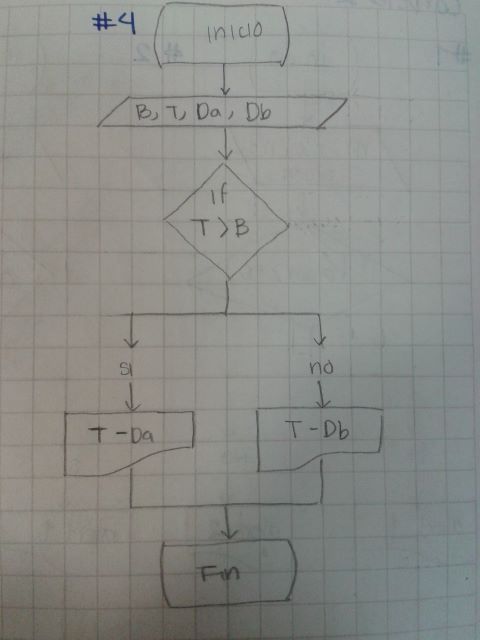 #4
inicio
B, T, Da, Db
if
T > B
si
no
T - Da
T - Db
Fin